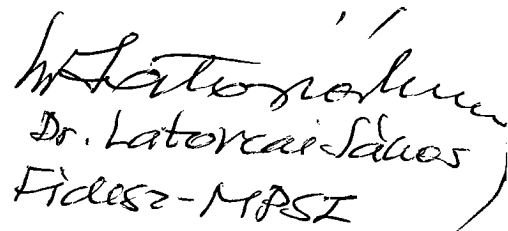 Dr. Latorcai János
Fidesz-MPSZ